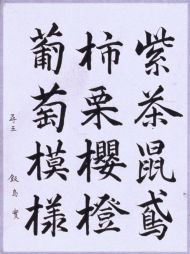 紫茶鼠鳶
柿栗櫻橙
葡萄模様
尋五 飯島實